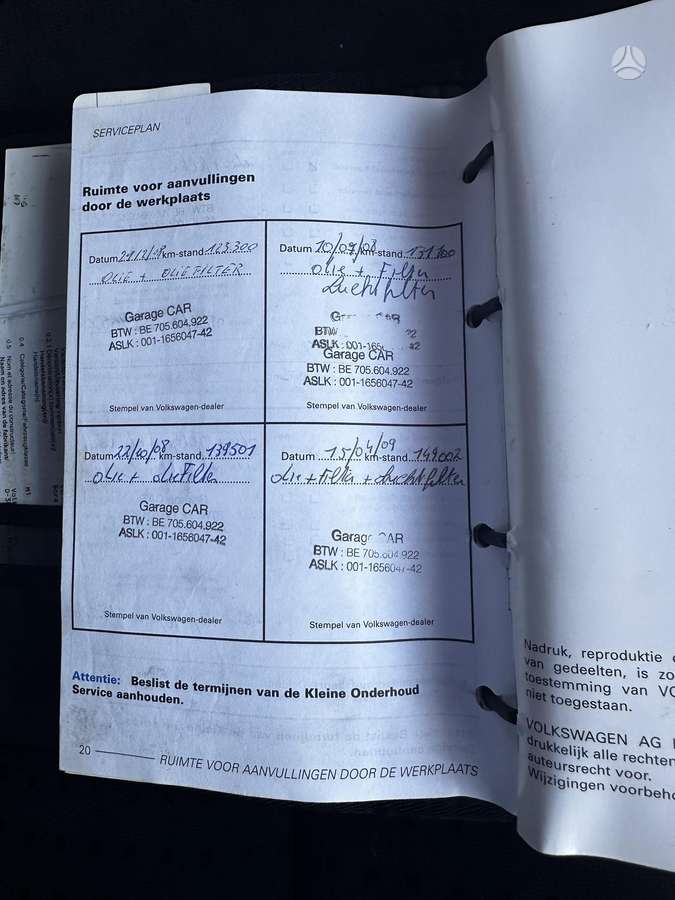 SERVICEPLAN
Ruimte voor aanvullingen
door de werkplaats
Datum km-stand 123300
OLIE + OLIEFILTER
Garage CAR
BTW : BE 705.604.922
ASLK : 001-1656047-42
Stempel van Volkswagen-dealer
Datum km-stand
Olie + Filter
Luchtfilter
BTW
ASLK : 001-165 42
Garage CAR
BTW : BE 705.604.922
ASLK : 001-1656047-42
Stempel van Volkswagen-dealer
Datum 22/10/08 km-stand 139501
Olie + oliefilter
Garage CAR
BTW : BE 705.604.922
ASLK : 001-1656047-42
Stempel van Volkswagen-dealer
Datum 15/04/09 km-stand 149002
Olie + Filter + Luchtfilter
Garage CAR
BTW : BE 705.604.922
ASLK : 001-1656047-42
Stempel van Volkswagen-dealer
Attentie: Beslist de termijnen van de Kleine Onderhoud
Service aanhouden.
20 RUIMTE VOOR AANVULLINGEN DOOR DE WERKPLAATS
Nadruk, reproduktie
van gedeelten, is
toestemming van
niet toegestaan.
VOLKSWAGEN AG
drukkelijk alle rechten
auteursrecht voor.
Wijzigingen